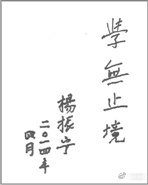 學無止境
楊振宁
二〇一四年
四月